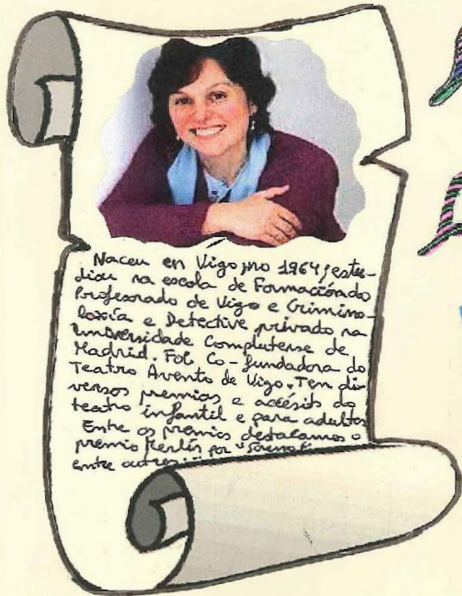 Naceu en Vigo, no 1964, estu-
diou na escola de Formación do
Profesorado de Vigo e Crimino-
loxía e Detective privado na
Universidade Complutense de
Madrid. Foi Co-fundadora do
Teatro Avento de Vigo. Ten di-
versos premios e accésits do
teatro infantil e para adultos
Entre os premios destacamos o
premio por
entre outros